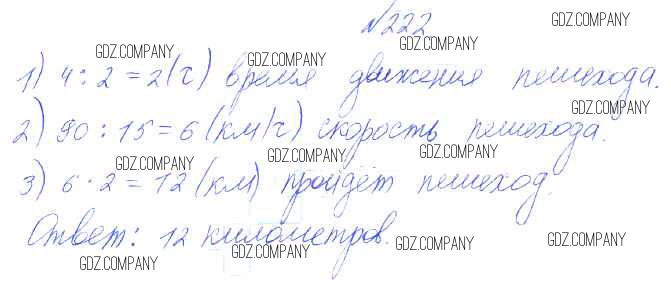 №222
GDZ.COMPANY GDZ.COMPANY GDZ.COMPANY
1) 4 : 2 = 2 (г) время движения пешехода.
GDZ.COMPANY GDZ.COMPANY GDZ.COMPANY
2) 90 : 15 = 6 (км/г) скорость пешехода.
GDZ.COMPANY GDZ.COMPANY GDZ.COMPANY
3) 6 · 2 = 12 (км) пройдёт пешеход.
Ответ: 12 километров.
GDZ.COMPANY GDZ.COMPANY GDZ.COMPANY GDZ.COMPANY